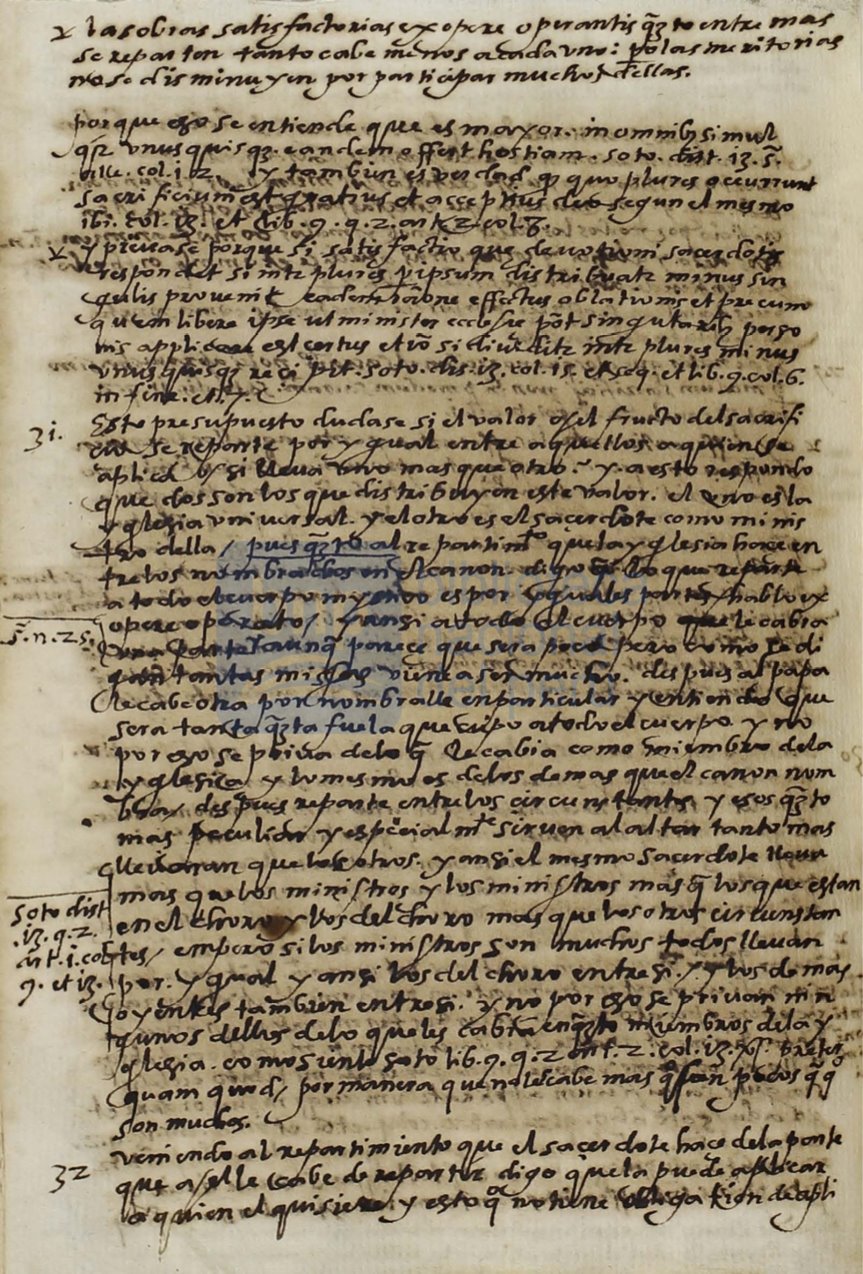 las obras satisfactorias ex opere operantis qto entre mas
se reparten tanto cabe menos a cada uno: po las meritorias
no se disminuyen por participar muchos dellas.
porque eso se entiende que es mayor. in omnibꝯ simul
qr unus quisqz eandem offert hostiam. soto. dist. 13. §.
alle. col. 1. 2. y tambien es verdad q quo plures occurrunt
sacrificium est gratius et acceptius deo segun el mesmo
ibi. col. 13. et lib. 9. q. 2. art. 2. col. 3.
y pruevase porque si satisfactio que devotioni sacerdotis
respondet si inter plures p ipsum distribuatr minus sin
gulis provenit eadem rõne effectus oblationis et precum
quem libere ipse ut minister ecclesie põt singularibꝯ perso
nis applicare est certus et iõ si dividitr intr plures minus
unus quisqz recipit. soto. dis. 13. col. 15. et seq. et lib. 9. col. 6.
in fine. et. 7.
31. Esto presupuesto dudase si el valor o el fructo del sacrifi
cio se reparte por ygual entre aquellos a quien se
aplica o si lleva uno mas que otro. y a esto respondo
que dos son los que distribuyen este valor. el uno es la
yglesia universal. y el otro es el sacerdote como minis
tro della / pues qto al repartimto que la yglesia hace en
tre los nombrados en el canon. digo q lo que reparte
a todo el cuerpo mystico es por yguales partes hablo ex
opere operato / y ansi a todo el cuerpo le cabra
§. n. 25.
una parte aunq parece que sera poca pero como se di
gan tantas missas viene a ser mucho. despues al papa
le cabe otra por nombralle en particular y entiendo que
sera tanta qta fue la que cupo a todo el cuerpo y no
por eso se priva de lo q le cabia como miembro de la
yglesia y lo mesmo es de los demas que el canon nom
bra / despues reparte entre los circunstantes y esos qto
mas peculiar y especialmte sirven al altar tanto mas
llevaran que los otros. y ansi el mesmo sacerdote lleva
mas que los ministros y los ministros mas q los que estan
soto dist
.13. q. 2.
art. 1. col.
9. et 13.
en el choro y los del choro mas que los otros circunstan
tes / empero si los ministros son muchos todos llevan
por. ygual y ansi los del choro entre si. y los demas
oyentes tambien entre si. y no por eso se privan nin
gunos dellos de lo que les cabia enqto miembros de la y
glesia. como siente soto lib. 9. q. 2 art. 2. col. 13. preter
quam quod / por manera que no les cabe mas q sean pocos q q
son muchos.
32 veniendo al repartimiento que el sacerdote hace de la parte
que a el le cabe de repartir digo que la puede aplicar
a quien el quisiere y esto q no tiene obligacion de apli